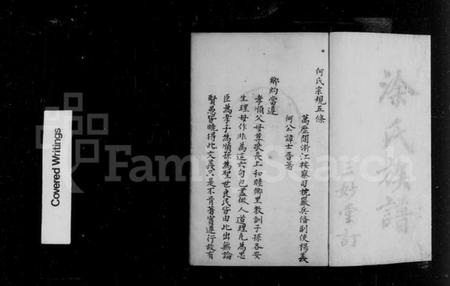 何氏宗規五條
萬歷間浙江按察司整嚴兵備副使楊義
何公諱士晋著
鄉約當遵
孝順父母尊敬長上和睦鄉里教訓子孫各安
生理毋作非為這六句已盡做人道理凡為忠
臣為孝子為順孫為聖世良民皆由此出無論
賢愚皆曉得此文義只是不肯著實遵行故有
Covered Writings
FamilySearch